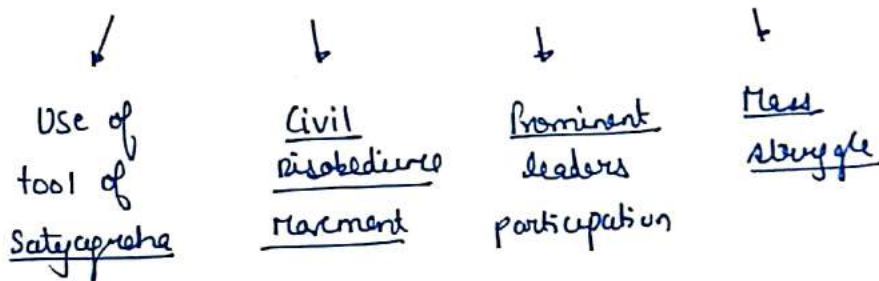 Use of
tool of
Satyagraha
Civil
Disobedience
Movement
Prominent
leaders
participation
Mass
struggle